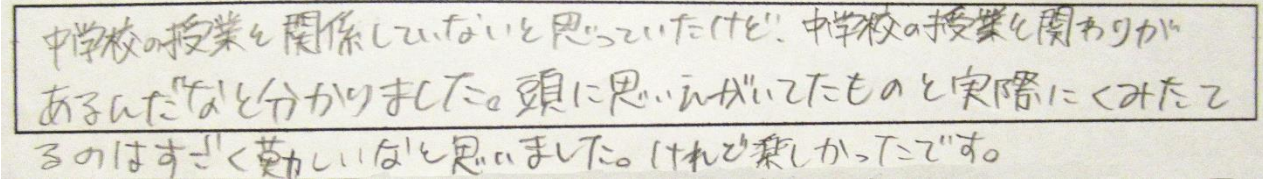 中学校の授業と関係していないと思っていたけど、中学校の授業と関わりが
あるんだなと分かりました。頭に思いえがいてたものと実際にくみたて
るのはすごく難しいなと思いました。けれど楽しかったです。